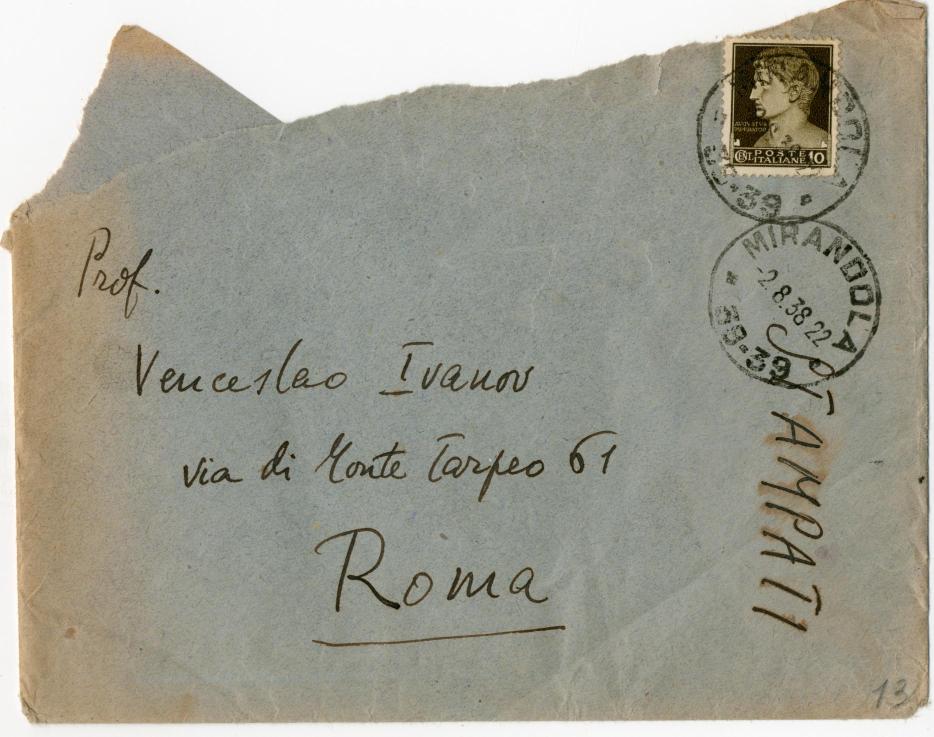 AVGVSTVS
IMPERATOR
CENT. POSTE ITALIANE 10
38-39
MIRANDOLA
-2.8.38 22
38-39
Prof.
Venceslao Ivanov
via di Monte Tarpeo 61
Roma
STAMPATI
13